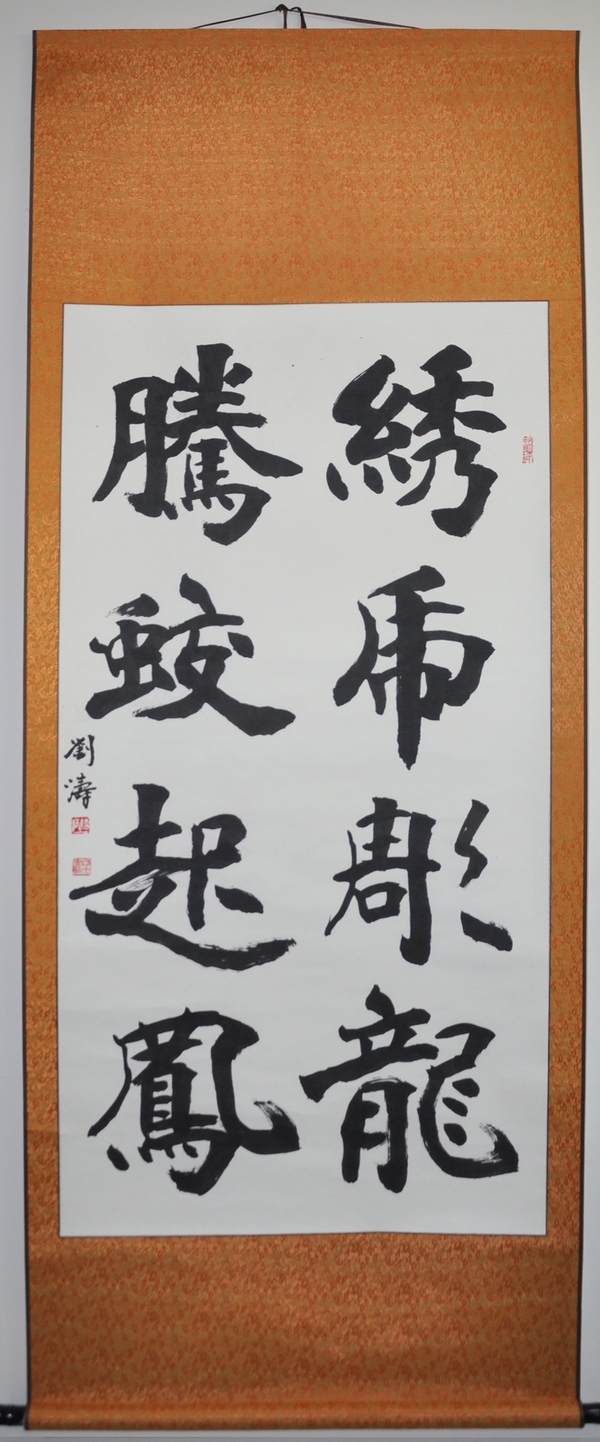 綉虎彫龍
騰蛟起鳳
劉濤